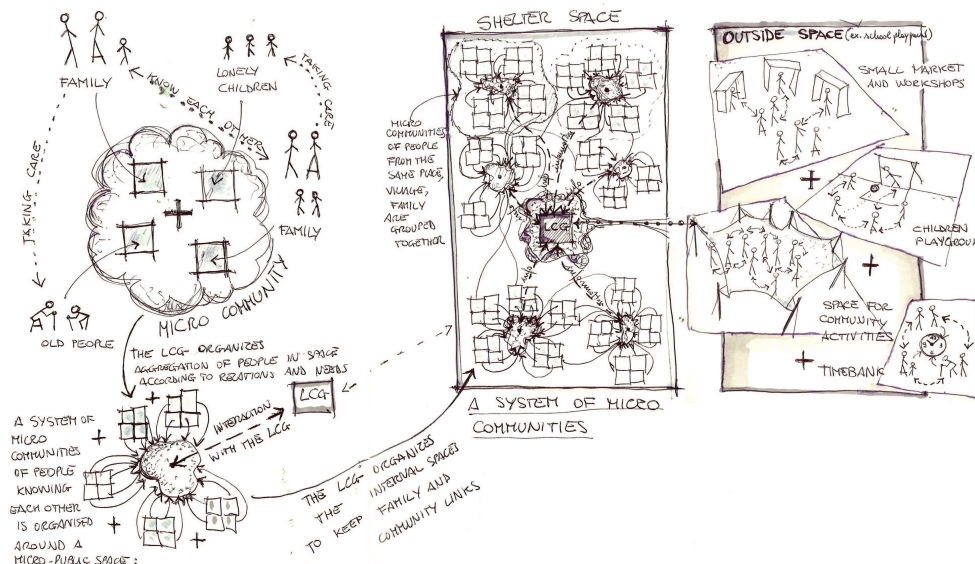 FAMILY
LONELY
CHILDREN
KNOW EACH OTHER
TAKING CARE
TAKING CARE
FAMILY
OLD PEOPLE
MICRO COMMUNITY
THE LCG ORGANIZES
AGGREGATION OF PEOPLE IN SPACE
ACCORDING TO RELATIONS AND NEEDS
LCG
INTERACTION
WITH THE LCG
A SYSTEM OF
MICRO
COMMUNITIES
OF PEOPLE
KNOWING
EACH OTHER
IS ORGANISED
AROUND A
MICRO-PUBLIC SPACE:
THE LCG ORGANIZES
THE INTERNAL SPACES
TO KEEP FAMILY AND
COMMUNITY LINKS
SHELTER SPACE
MICRO
COMMUNITIES
OF PEOPLE
FROM THE
SAME PLACE,
VILLAGE,
FAMILY
ARE
GROUPED
TOGETHER
LCG
A SYSTEM OF MICRO
COMMUNITIES
OUTSIDE SPACE (ex. school playground)
SMALL MARKET
AND WORKSHOPS
CHILDREN
PLAYGROUND
SPACE FOR
COMMUNITY
ACTIVITIES
TIMEBANK